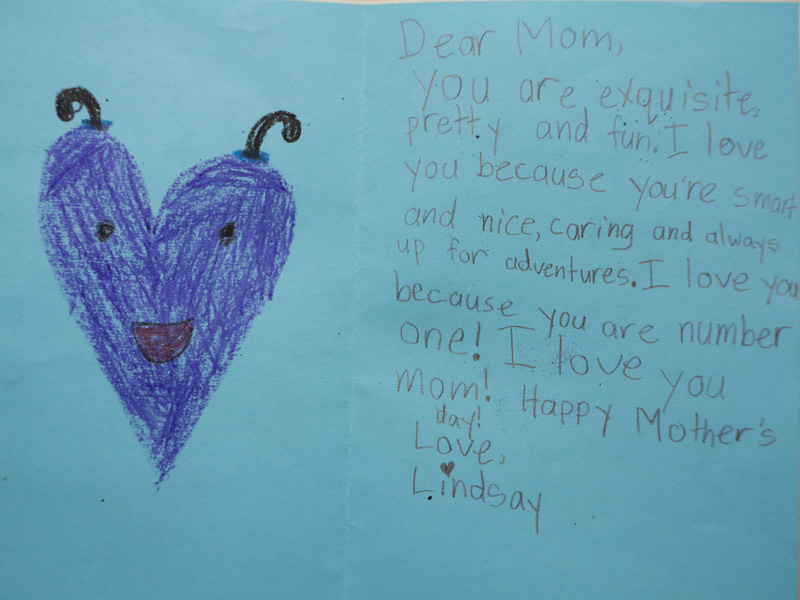 Dear Mom,
you are exquisite,
pretty and fun. I love
you because you're smart
and nice, caring and always
up for adventures. I love you
because you are number
one! I love you
mom! Happy Mother's
day!
Love,
Lindsay